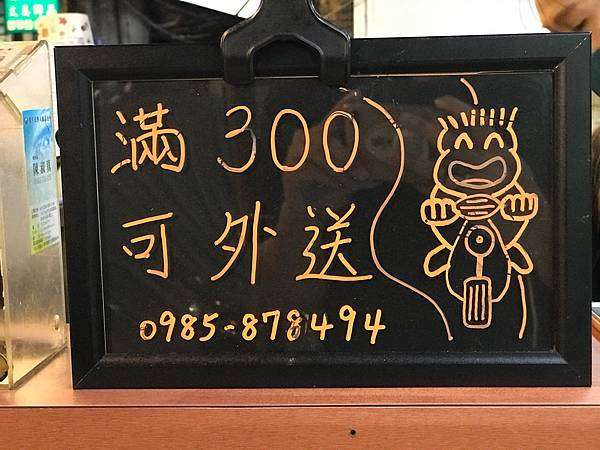 滿300
可外送
0985-878494